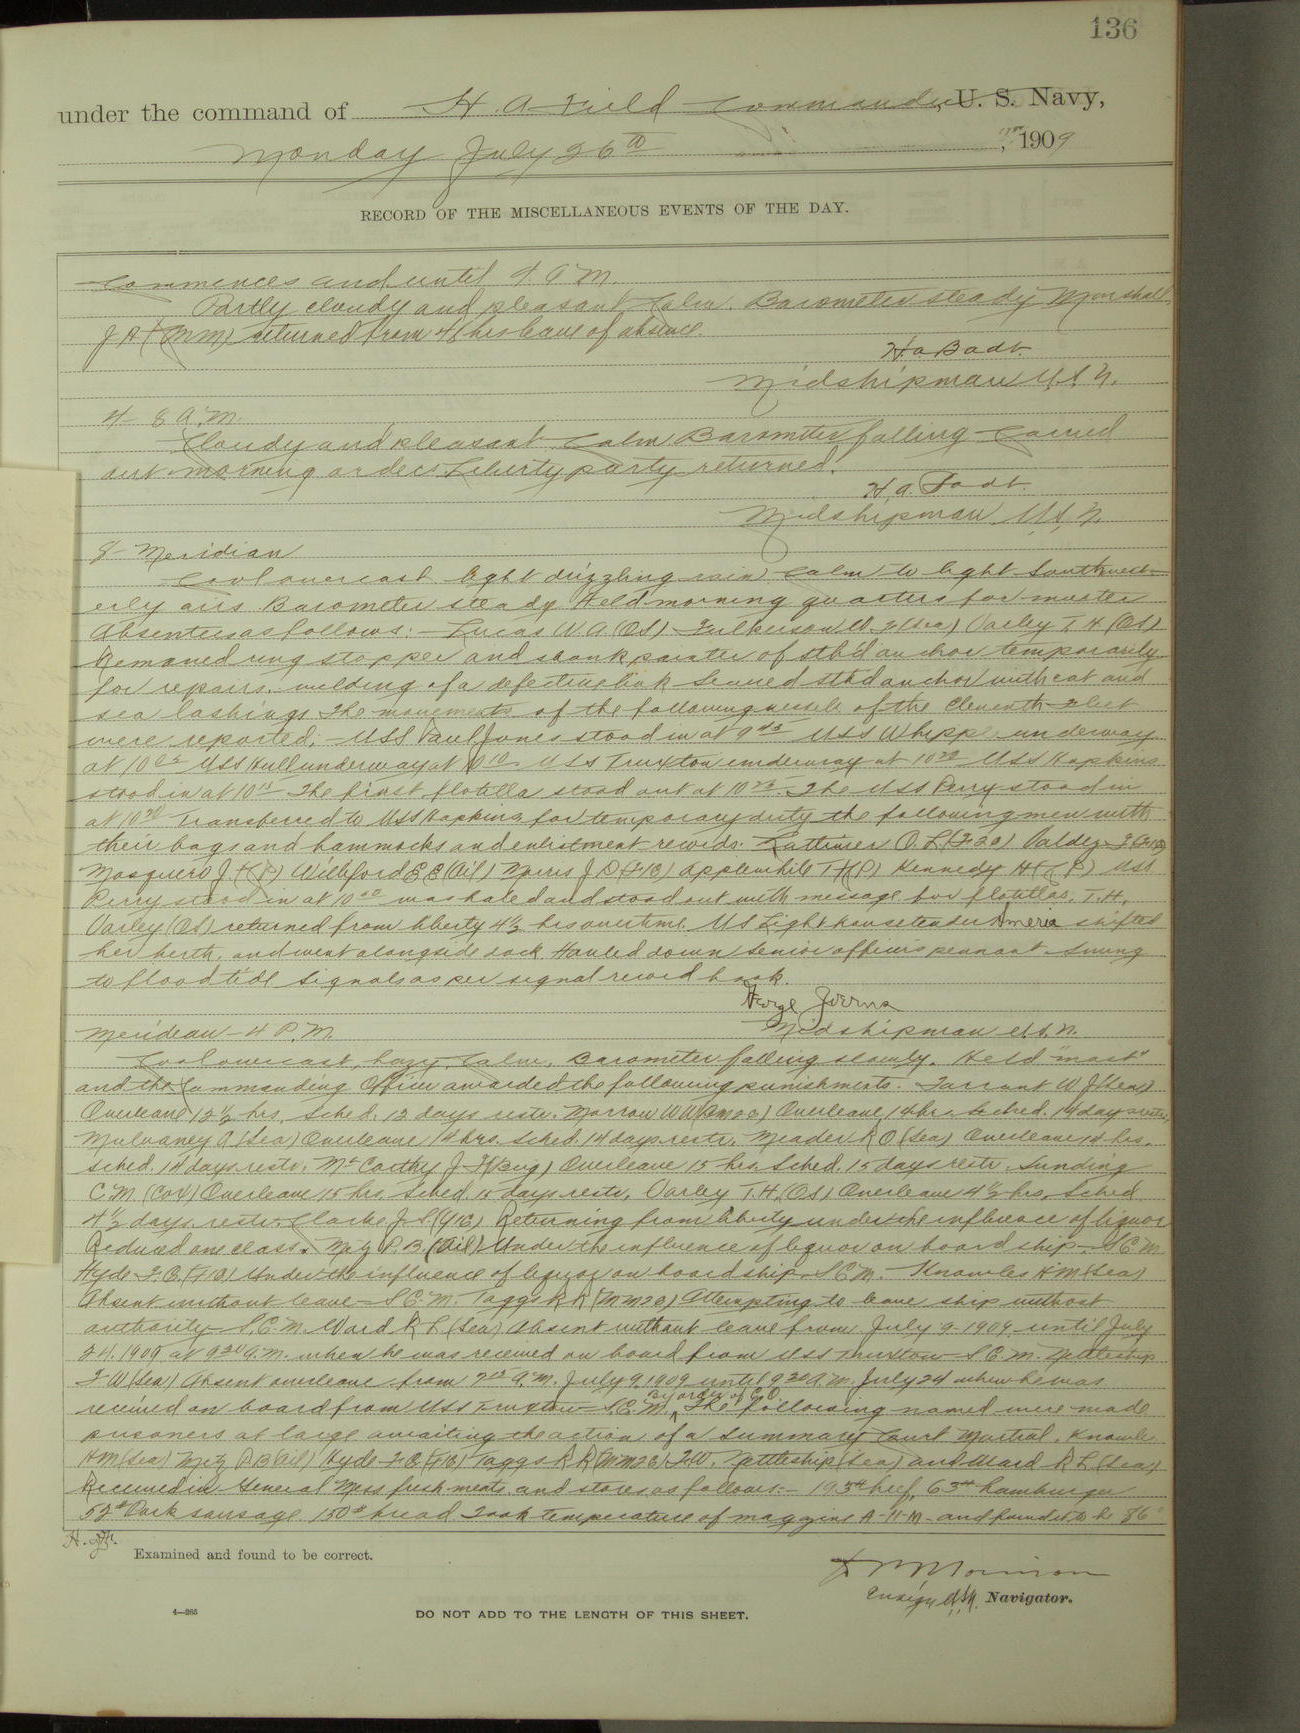 136
under the command of H. A. Field Commander, U. S. Navy,
Monday July 26th, 1909
RECORD OF THE MISCELLANEOUS EVENTS OF THE DAY.
Commences and until 4 A M.
Partly cloudy and pleasant Calm. Barometer steady Marshall
J A (MM) returned from 48 hrs leave of absence.
H a Badt.
Midshipman U.S.N.
4 - 8 A.M.
Cloudy and pleasant Calm Barometer falling Carried
out morning orders Liberty party returned.
H. a. Badt.
Midshipman U.S.N.
8 - Meridian
Cool overcast light drizzling rain Calm to light Southwest-
erly airs Barometer steady Held morning quarters for muster
Absentees as follows:- Lucas W. A (OS) Fulkerson W. (Sea) Varley T. H (OS)
Removed ring stopper and shank painter of stb'd anchor temporarily
for repairs. welding of a defective link Secured stbd anchor with cat and
sea lashings The movements of the following vessels of the Eleventh Fleet
were reported:- USS Paul Jones stood in at 9 45 USS Whipple underway
at 10 05 USS Hull underway at 10 10 USS Truxton underway at 10 USS Hopkins
stood in at 10 15 The first flotilla stood out at 10 25. The USS Perry stood in
at 10 Transferred to USS Hopkins for temporary duty the following men with
their bags and hammocks and enlistment records. Lattimer O. L (F2c) Valdez
Mosquero J. (CP) Williford E E (Oil) Morris J. D (F1C) Applewhite T H (P) Kennedy H (CP) USS
Perry stood in at 10 was hailed and stood out with message for flotillas. T. H.
Varley (OS) returned from liberty 4½ hrs overtime. US Light house tender shifted
her berth and went alongside dock Hauled down Senior officer's pennant Swung
to flood tide Signals as per signal record book.
George Joerns
Midshipman U.S.N.
Meridian - 4 P.M.
Cool overcast, hazy, Calm. Barometer falling slowly. Held "mast"
and the Commanding Officer awarded the following punishments. Tarrant W J (Sea)
Overleave 12½ hrs, Sched. 12 days restr. Morrow W W (Bm2c) Overleave 14 hrs. Sched. 14 days restr.
Mulvaney (Sea) Overleave 14 hrs. Sched. 14 days restr. Meader R O (Sea) Overleave 14 hrs.
Sched. 14 days restr. McCarthy J. H (Bug) Overleave 15 hrs. Sched. 15 days restr. Sunding
C. M. (Cox) Overleave 15 hrs. Sched. 15 days restr. Varley T. H. (OS) Overleave 4½ hrs. Sched
4½ days. restr. Clarke J. (Y1C) Returning from liberty under the influence of liquor
Reduced one class. Metz P. B. (Oil) Under the influence of liquor on board ship - S.C.M.
Hyde F. C. (F1C) Under the influence of liquor on board ship. S C M. Knowles H M (Sea)
Absent without leave S C. M. Taggs R R (MM2C) Attempting to leave ship without
authority - S. C. M. Ward R L (Sea) Absent without leave from July 9-1909 until July
24. 1909 at 9 30 A. M. when he was received on board from USS Truxton S. C. M. Nettleship
F W (Sea) Absent overleave from 7 15 A.M. July 9. 1909 until 9 30 A.M. July 24 when he was
By order of C. O.
received on board from USS Truxton S. C. M. The following named were made
prisoners at large awaiting the action of a Summary Court Martial. Knowles
H M (Sea) Metz P B (Oil) Hyde F C (F1C) Taggs R R (MM2C) F. W. Nettleship (Sea) and Ward R L (Sea)
Received in General Mess fresh meats and stores as follows:- 195# beef, 63# hamburger
52# Pork sausage 150# bread Took temperature of magazine A-11-M and found it to be 86°
H. A. F.
Examined and found to be correct.
Ensign U.S.N. Navigator.
4—265
DO NOT ADD TO THE LENGTH OF THIS SHEET.